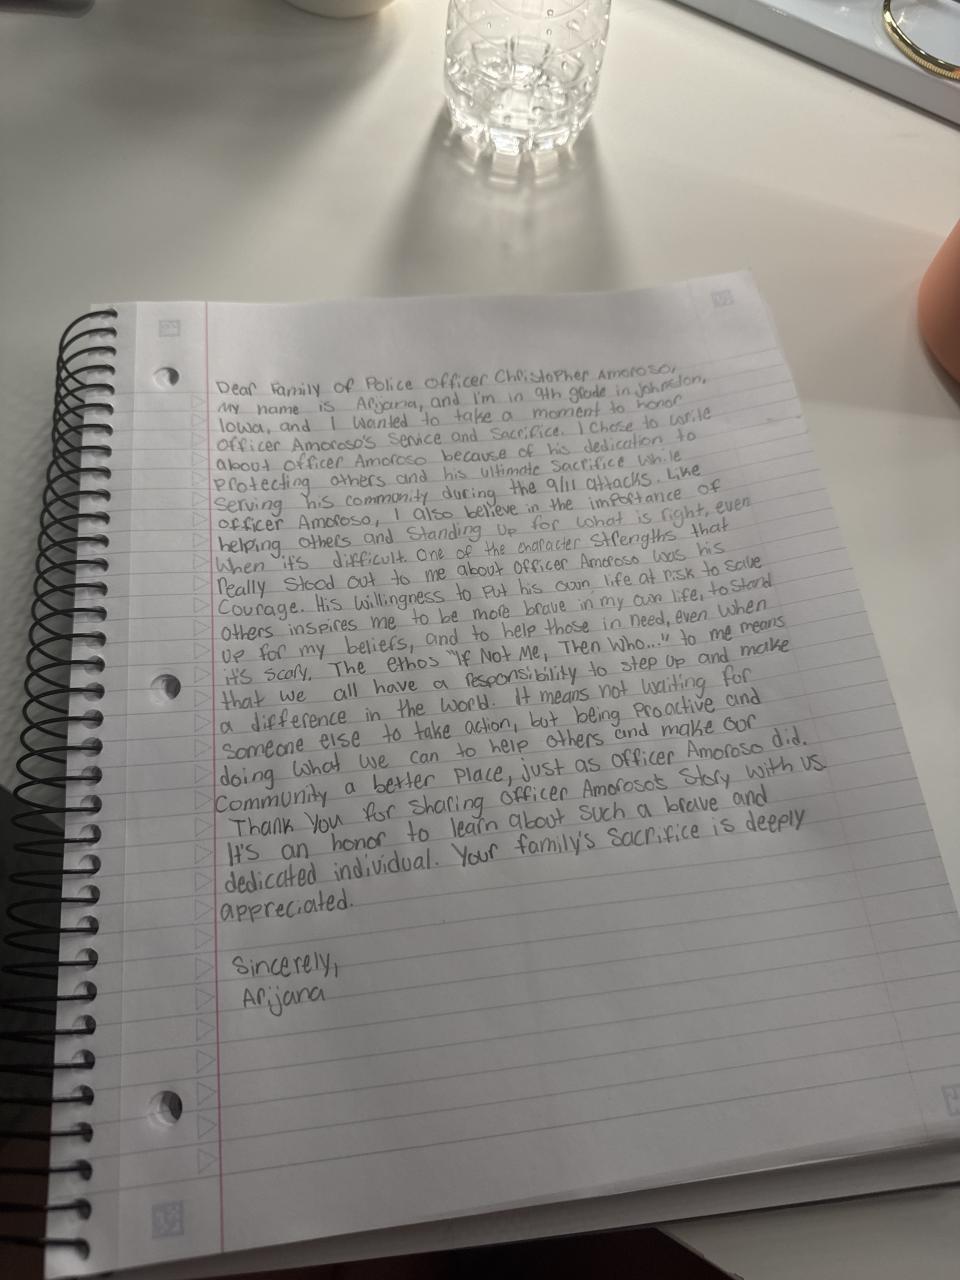 Dear Family of Police Officer Christopher Amoroso,
My name is Arijana, and I'm in 9th grade in Johnston,
Iowa, and I wanted to take a moment to honor
Officer Amoroso's Service and Sacrifice. I chose to write
about Officer Amoroso because of his dedication to
protecting others and his ultimate sacrifice while
serving his community during the 9/11 attacks. Like
Officer Amoroso, I also believe in the importance of
helping others and standing up for what is right, even
when it's difficult. One of the character strengths that
really stood out to me about Officer Amoroso was his
Courage. His willingness to put his own life at risk to save
others inspires me to be more brave in my own life, to stand
up for my beliefs, and to help those in need, even when
it's scary. The ethos "If Not Me, Then Who..." to me means
that we all have a responsibility to step up and make
a difference in the world. It means not waiting for
someone else to take action, but being proactive and
doing what we can to help others and make our
Community a better place, just as Officer Amoroso did.
Thank you for sharing Officer Amoroso's story with us
It's an honor to learn about such a brave and
dedicated individual. Your family's Sacrifice is deeply
appreciated.
Sincerely,
Arijana